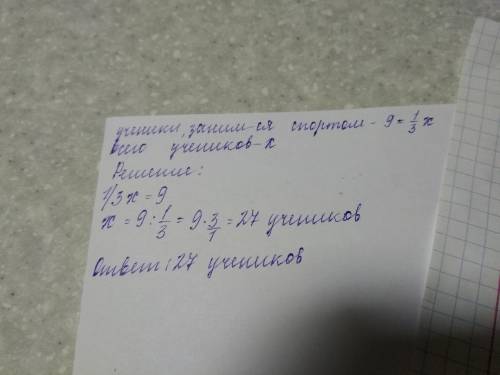 ученики, заним-ся спортом - 9 = 1/3 x
всего учеников - x
Решение:
1/3 x = 9
x = 9 : 1/3 = 9 · 3/1 = 27 учеников
Ответ: 27 учеников